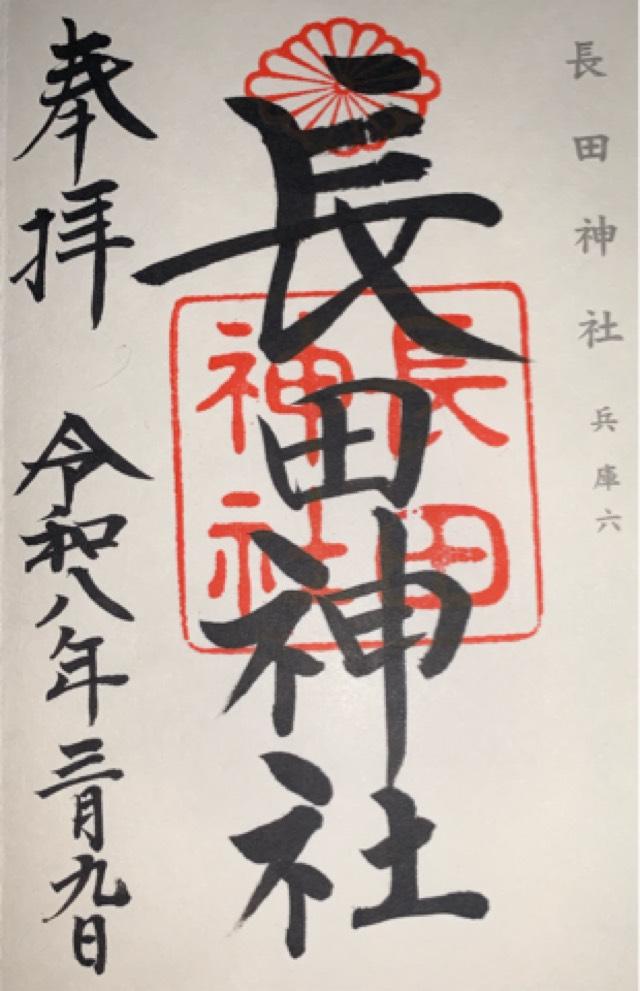 長田神社 兵庫六
長田神社
長田
神社
奉拝 令和八年三月九日